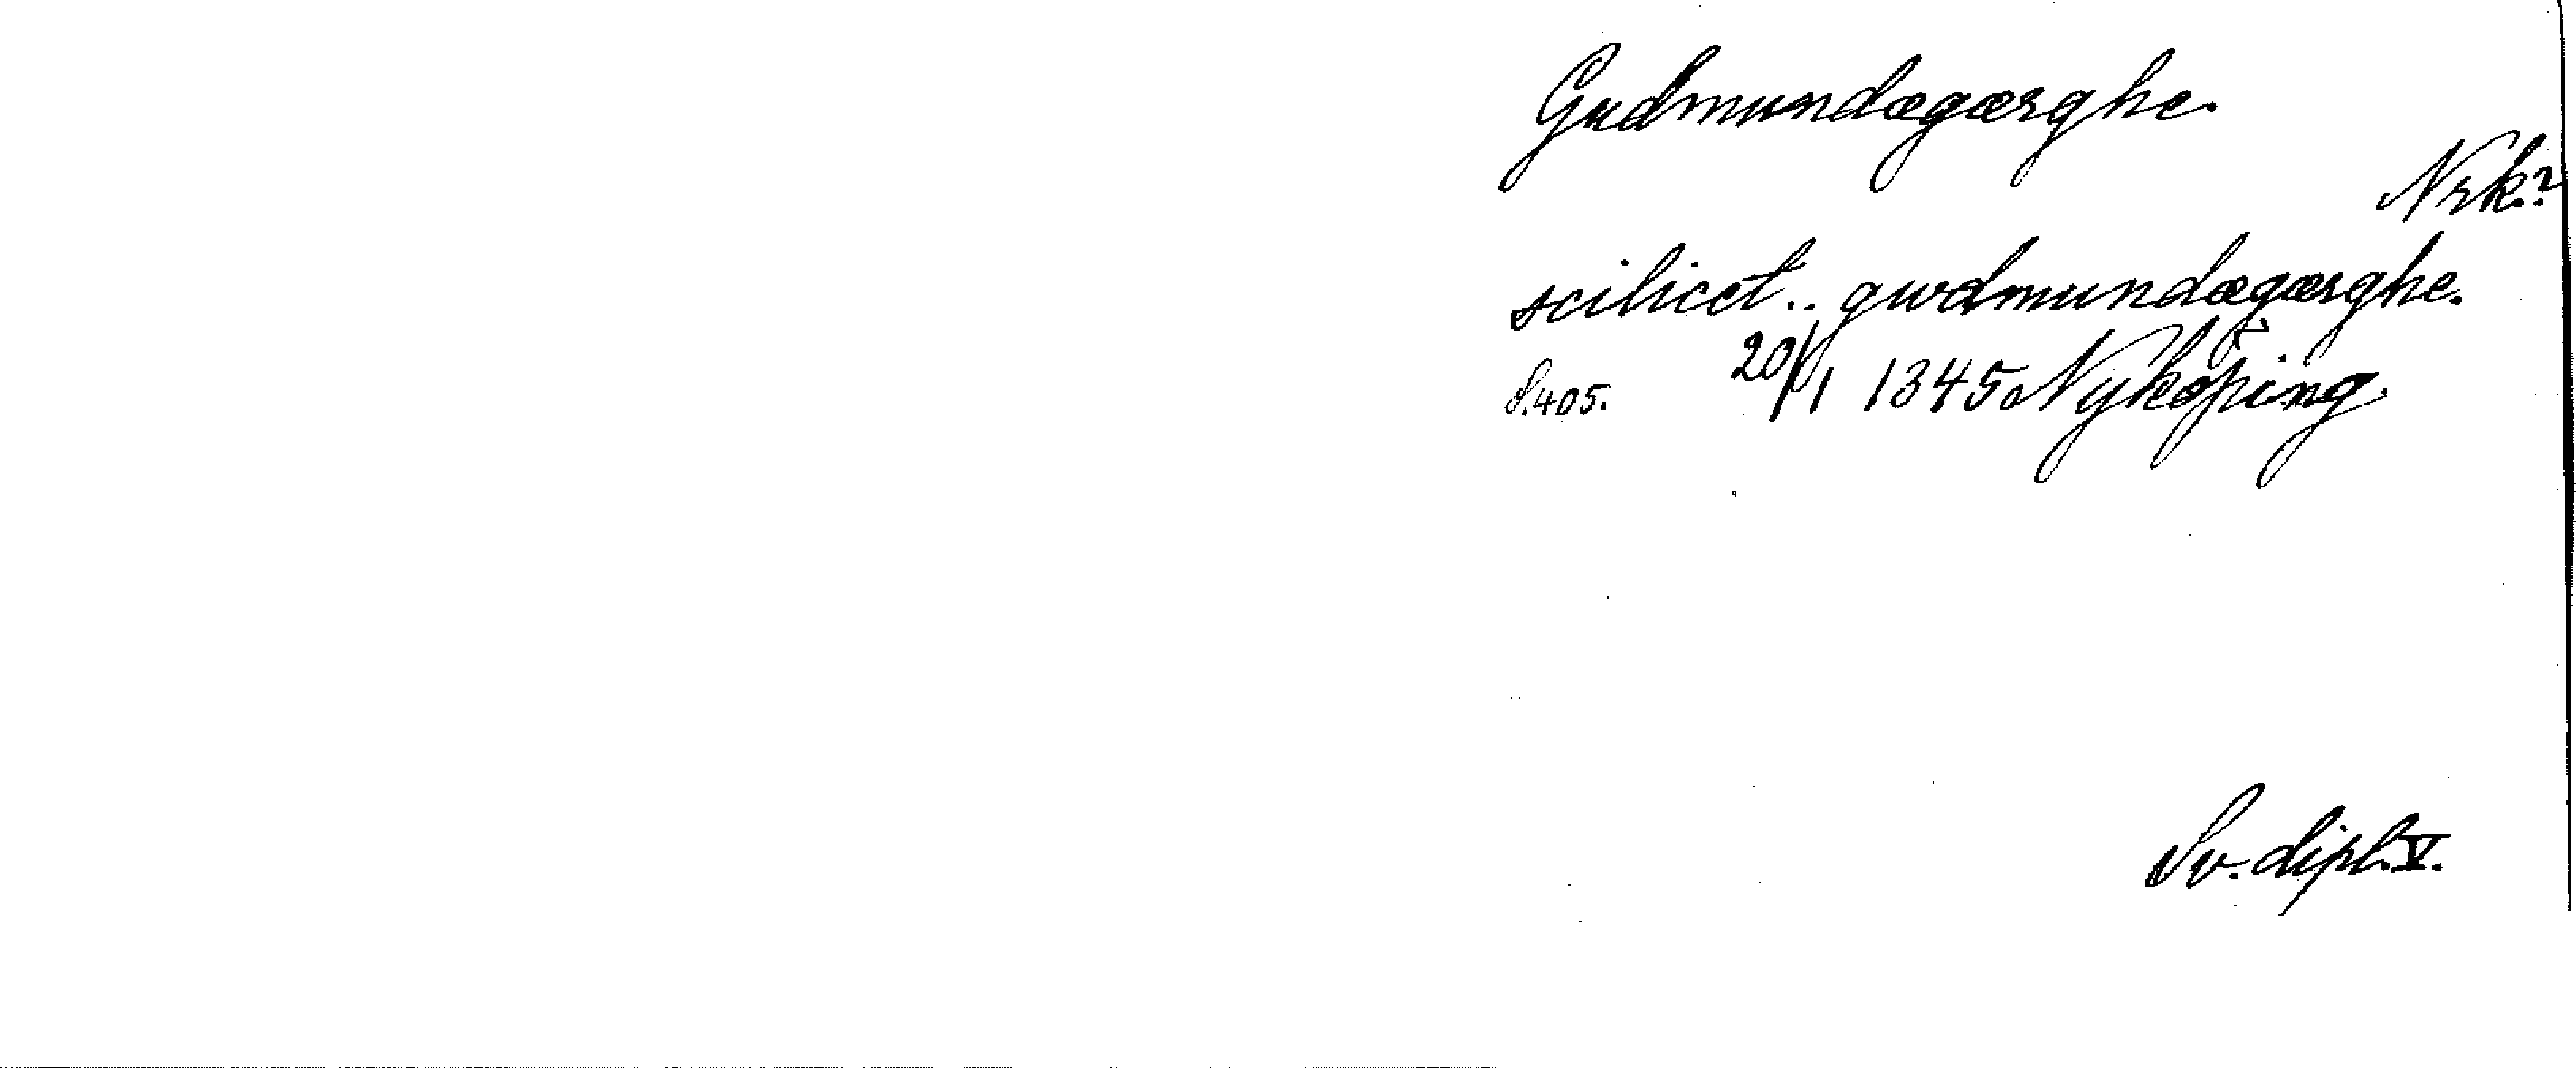 Gudmundægærghe.
Nrk.?
scilicet.. gwdmundægærghe.
S.405. 20/1 1345 Nyköping.
Sv. dipl. V.